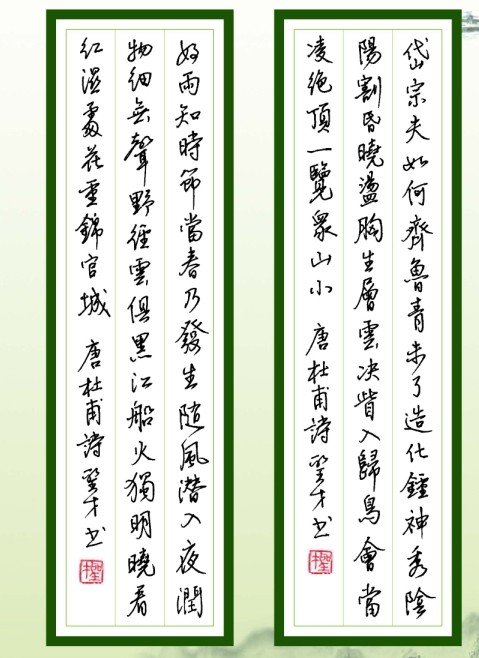 岱宗夫如何齊魯青未了造化鍾神秀陰
陽割昏曉盪胸生層雲决眥入歸鳥會當
凌绝頂一覽衆山小 唐杜甫詩 才书
好雨知時節當春乃發生随風潜入夜潤
物細无聲野徑雲俱黑江船火獨明曉看
紅濕處花重錦官城 唐杜甫詩 才书